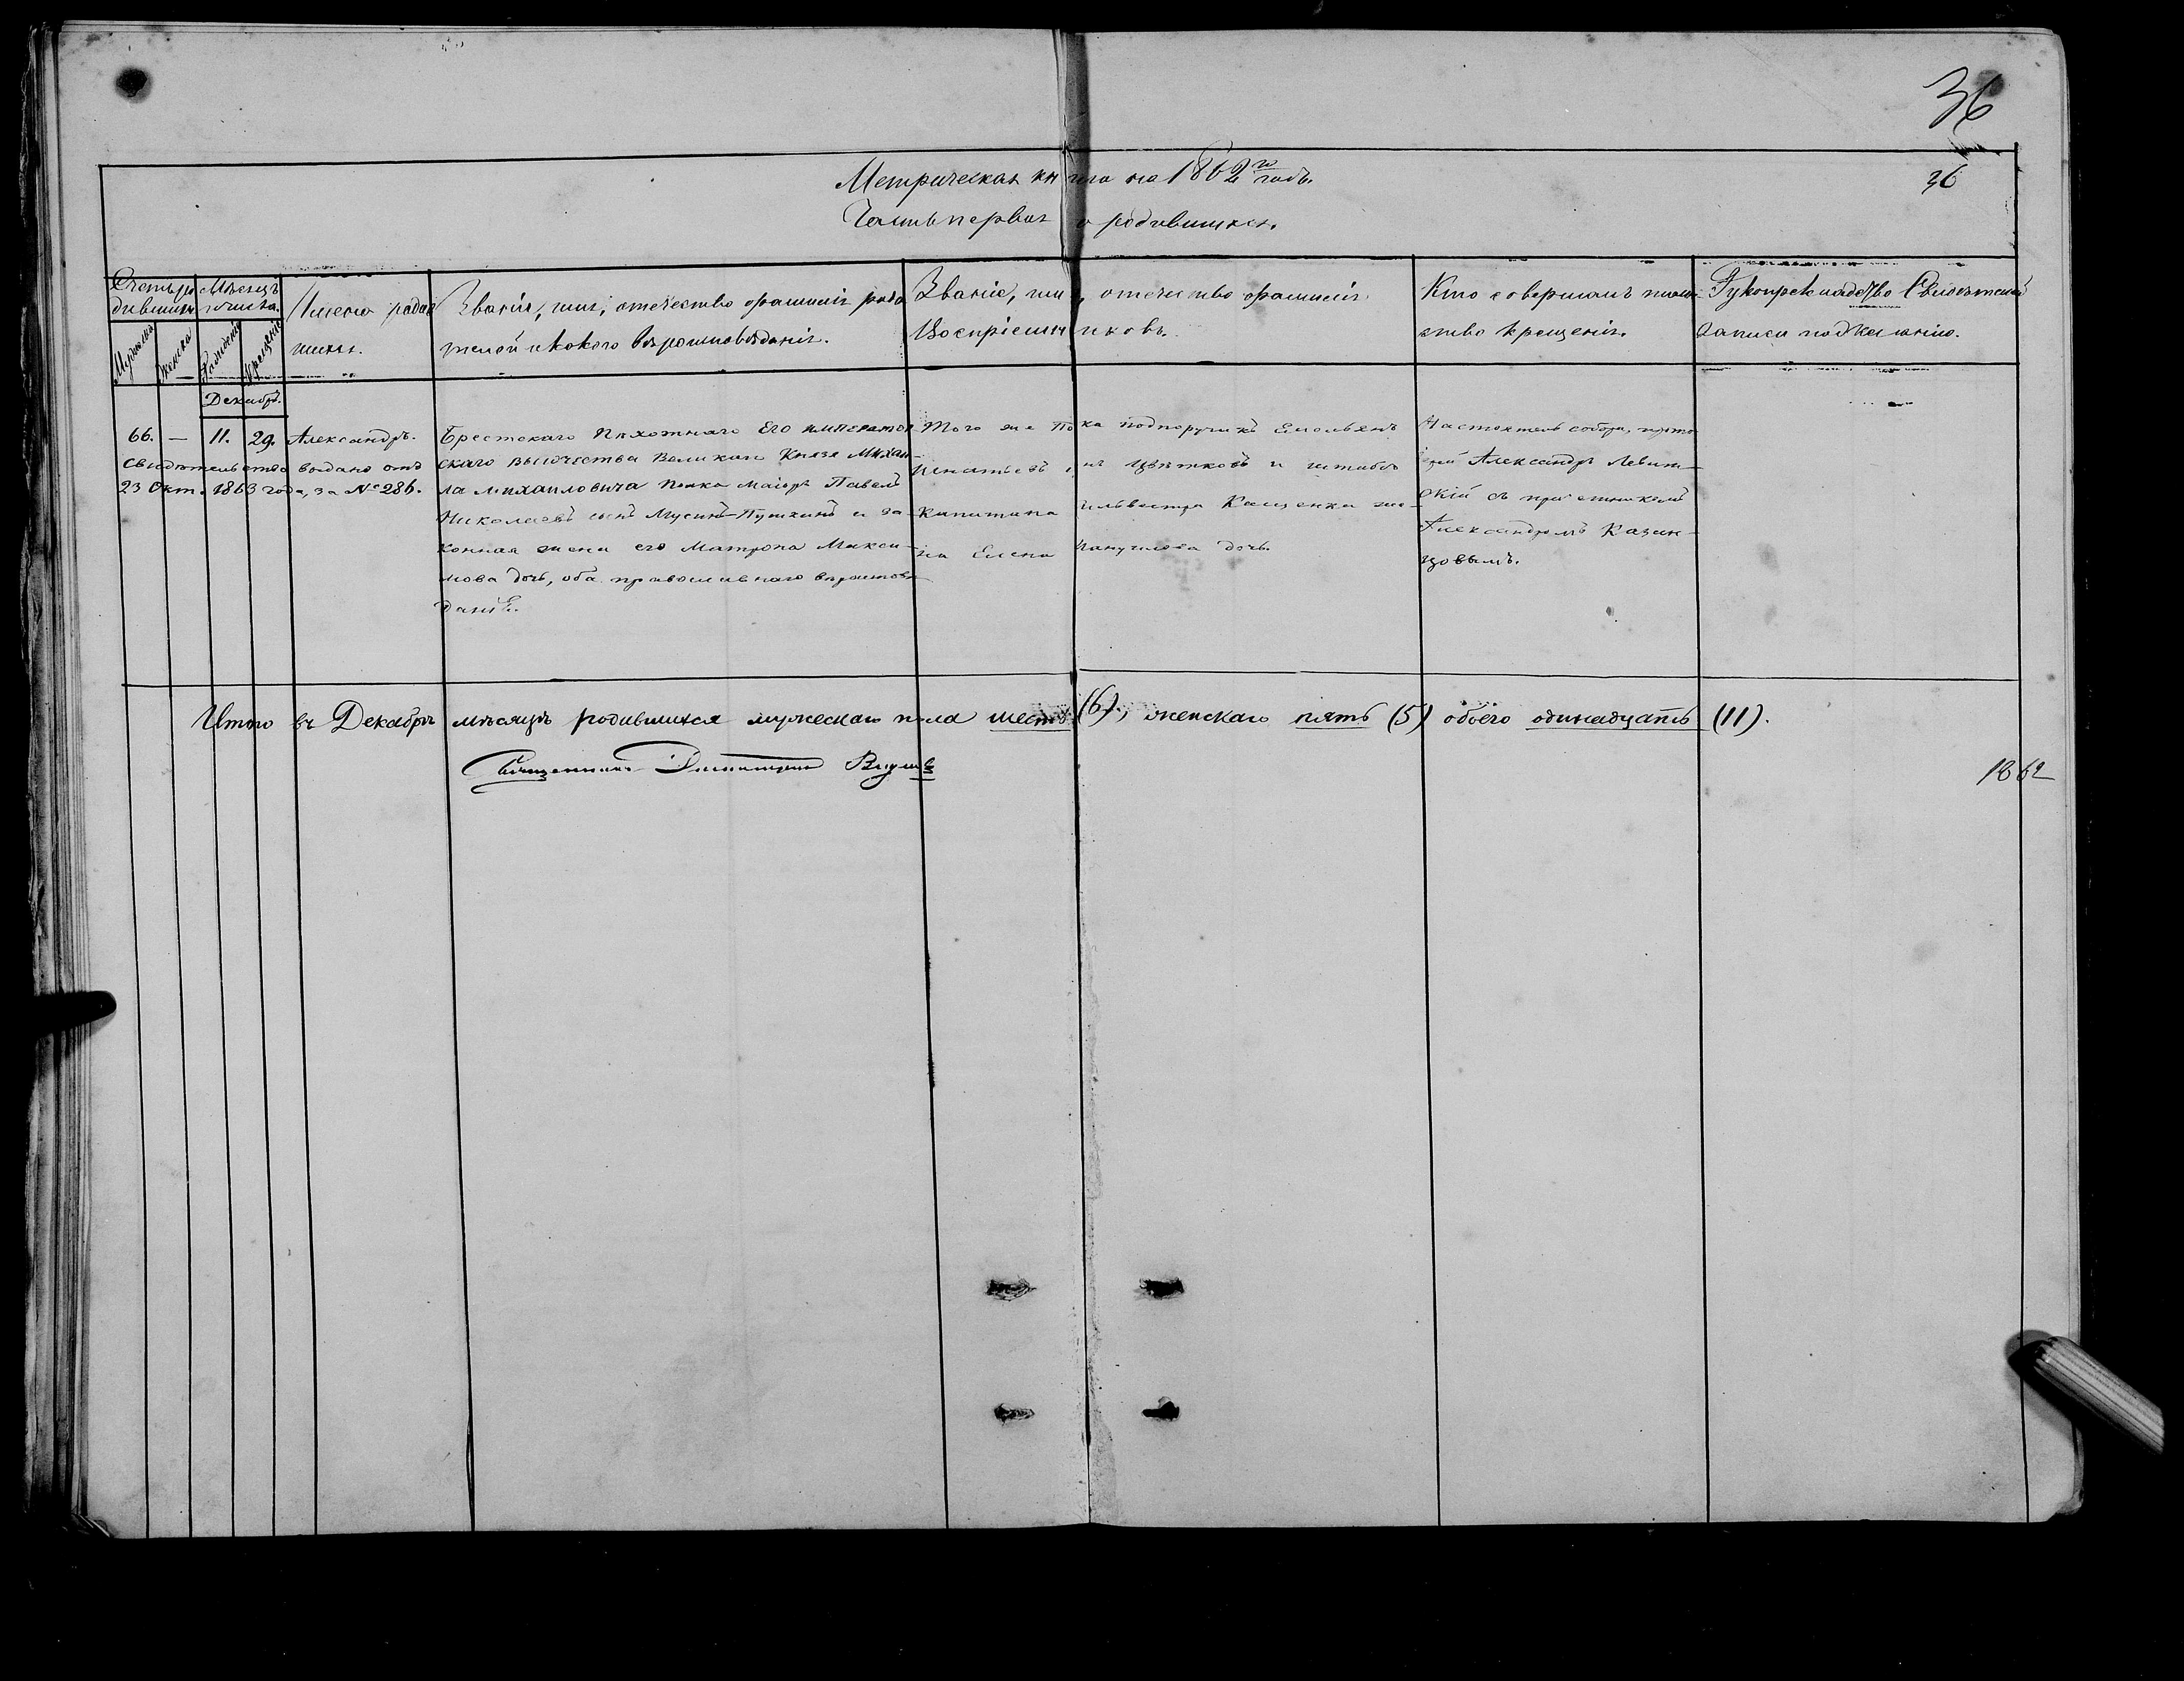 36
Метрическая книга на 1862го годъ.
36
Часть первая о родившихся.
Счетъ ро
дившихся
Мѣсяцъ
и число.
Мужеска
Женска
Рожденія
Крещенія
Имена родив
шихся.
Званія, имя, отечество фамилія роди
телей и какого вѣроисповѣданія.
Званіе, имя, отечество фамилія
Воспріемниковъ.
Кто совершалъ таин
ство крещенія.
Рукоприкладство Свидѣтелей
записи по желанію.
Декабрь.
66. — 11. 29. Александръ.
Свидѣтельство выдано отъ
23 Окт. 1863 года, за № 286.
Брестскаго Пѣхотнаго Его Император
скаго Высочества Великаго Князя Михаи-
ла Михаиловича Полка Маіоръ Павелъ
Николаевъ сынъ Мусинъ-Пушкинъ и за-
конная жена его Матрона Макси-
мова дочь, оба православнаго вѣроисповѣ-
данія.
Того же полка подпоручикъ Емельянъ
Игнатьевъ Цвѣтковъ и штабсъ
Капитана Сильвестра Кащенки же-
на Елена дочь.
Настоятель собора, прото
іерей Александръ Левит-
скій съ причетникомъ
Александромъ Казан-
цовымъ.
Итого въ Декабрѣ мѣсяцѣ родившихся мужескаго пола шесть (6), женскаго пять (5) обоего одинадцать (11).
Священникъ Димитрій
1862